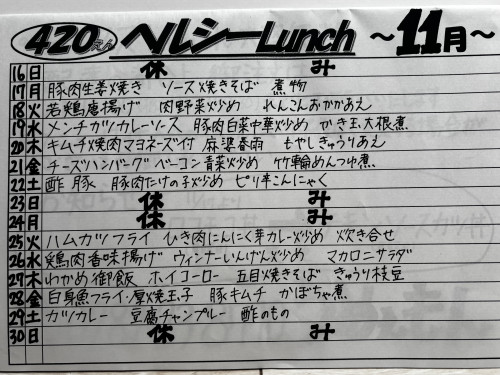 420えん ヘルシーLunch ~11月~
16 日 休 み
17 月 豚肉生姜焼き ソース焼きそば 煮物
18 火 若鶏唐揚げ 肉野菜炒め れんこんおかかあえ
19 水 メンチカツカレーソース 豚肉白菜中華炒め かき玉大根煮
20 木 キムチ焼肉マヨネーズ付 麻婆春雨 もやしきゅうりあえ
21 金 チーズハンバーグベーコン青菜炒め 竹輪めんつゆ煮
22 土 酢豚 豚肉たけの子炒め ピリ辛こんにゃく
23 日 休 み
24 月 休 み
25 火 ハムカツフライ ひき肉にんにく芽カレー炒め 炊き合せ
26 水 鶏肉香味揚げ ウィンナーいんげん炒め マカロニサラダ
27 木 わかめ御飯 ホイコーロー 五目焼きそば きゅうり枝豆
28 金 白身魚フライ・厚焼玉子 豚キムチ かぼちゃ煮
29 土 カツカレー 豆腐チャンプルー 酢のもの
30 日 休 み